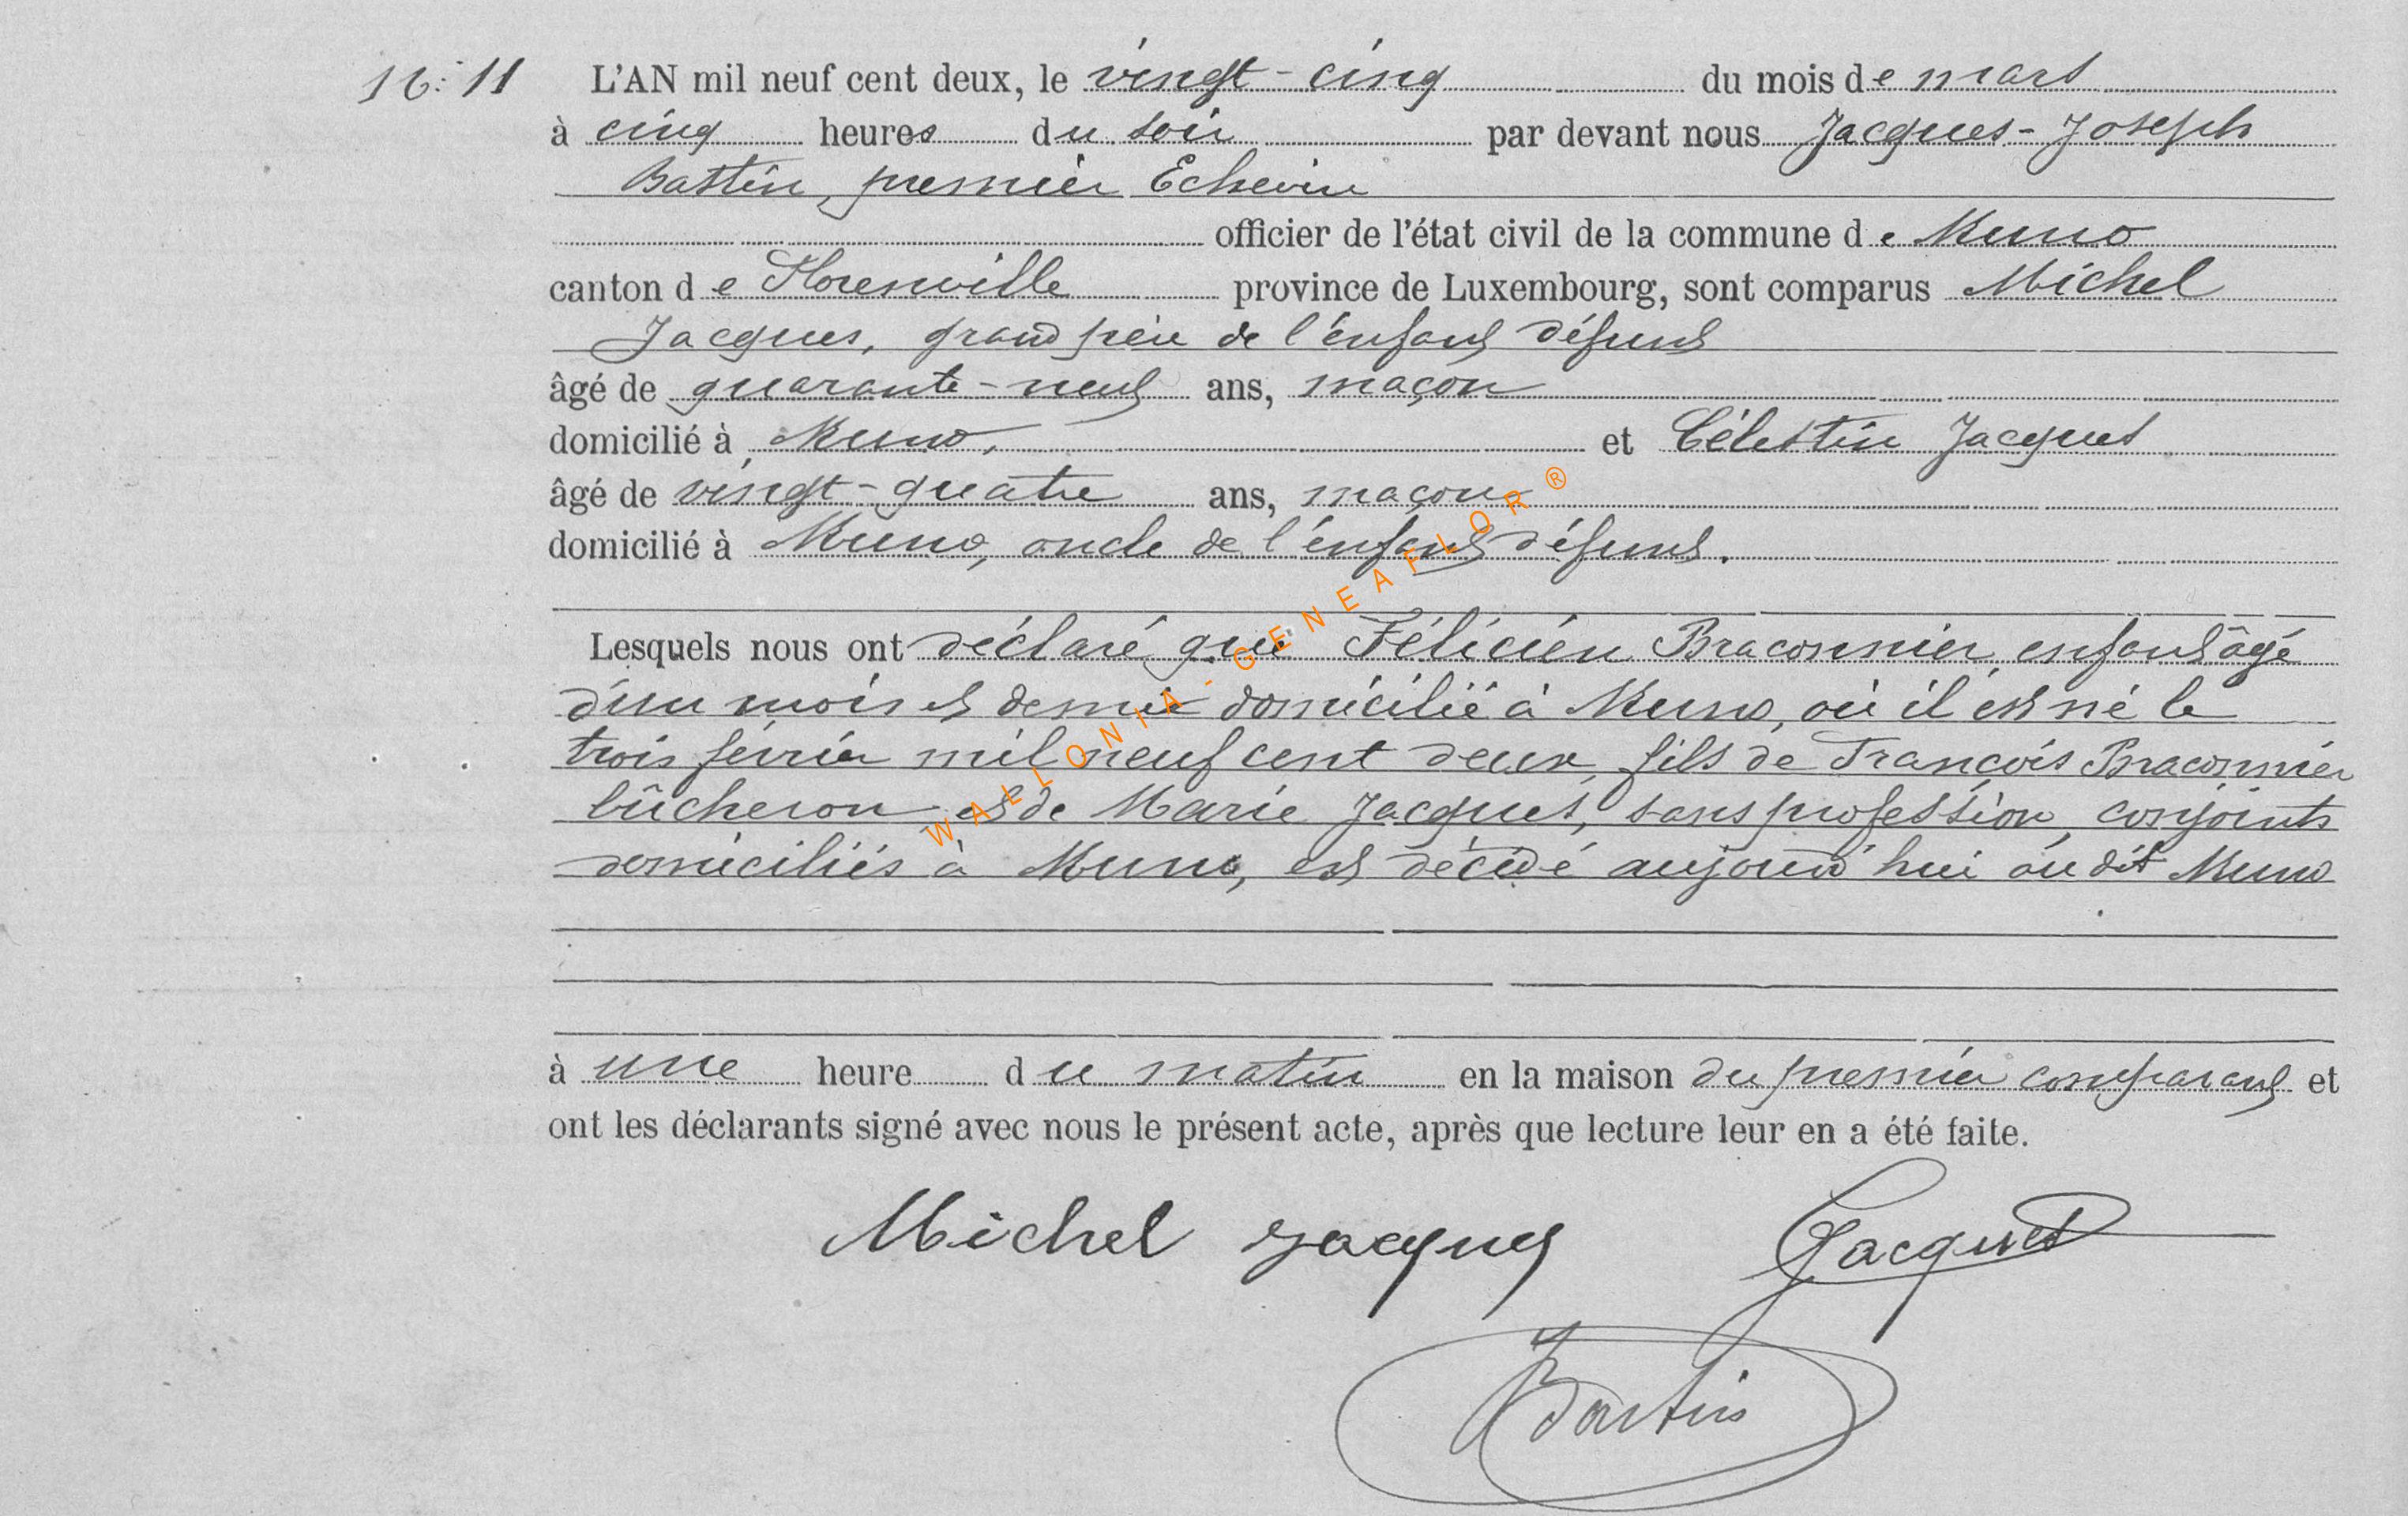 N: 11 L'AN mil neuf cent deux, le vingt-cinq du mois de mars
à cinq heures du soir par devant nous Jacques-Joseph
Bastin, premier Echevin
officier de l'état civil de la commune de Muno
canton de Florenville province de Luxembourg, sont comparus Michel
Jacques, grand père de l'enfant défunt
âgé de quarante-neuf ans, maçon
domicilié à Muno, et Célestin Jacques
âgé de vingt-quatre ans, maçon
domicilié à Muno, oncle de l'enfant défunt.
Lesquels nous ont déclaré que Félicien Braconnier, enfant âgé
d'un mois et demi domicilié à Muno, où il est né le
trois février mil neuf cent deux, fils de François Braconnier
bûcheron et de Marie Jacques, sans profession, conjoints
domiciliés à Muno, est décédé aujourd'hui au dit Muno
à une heure du matin en la maison du premier comparant et
ont les déclarants signé avec nous le présent acte, après que lecture leur en a été faite.
Michel Jacques Jacques
Bastin
WALLONIA-GENEAFLOR®